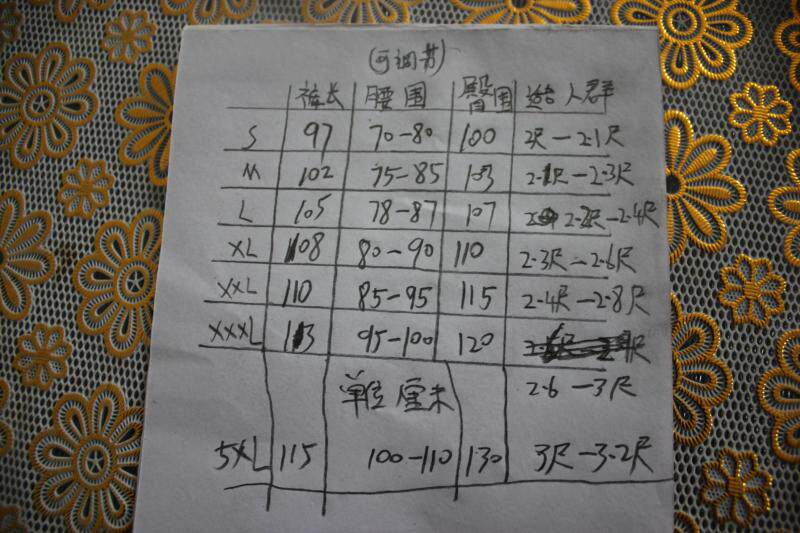 (可调节)
裤长 腰围 臀围 适合人群
S 97 70-80 100 2尺-2.1尺
M 102 75-85 103 2.1尺-2.3尺
L 105 78-87 107 2.2尺-2.4尺
XL 108 80-90 110 2.3尺-2.6尺
XXL 110 85-95 115 2.4尺-2.8尺
XXXL 113 95-100 120
单位厘米 2.6-3尺
5XL 115 100-110 130 3尺-3.2尺